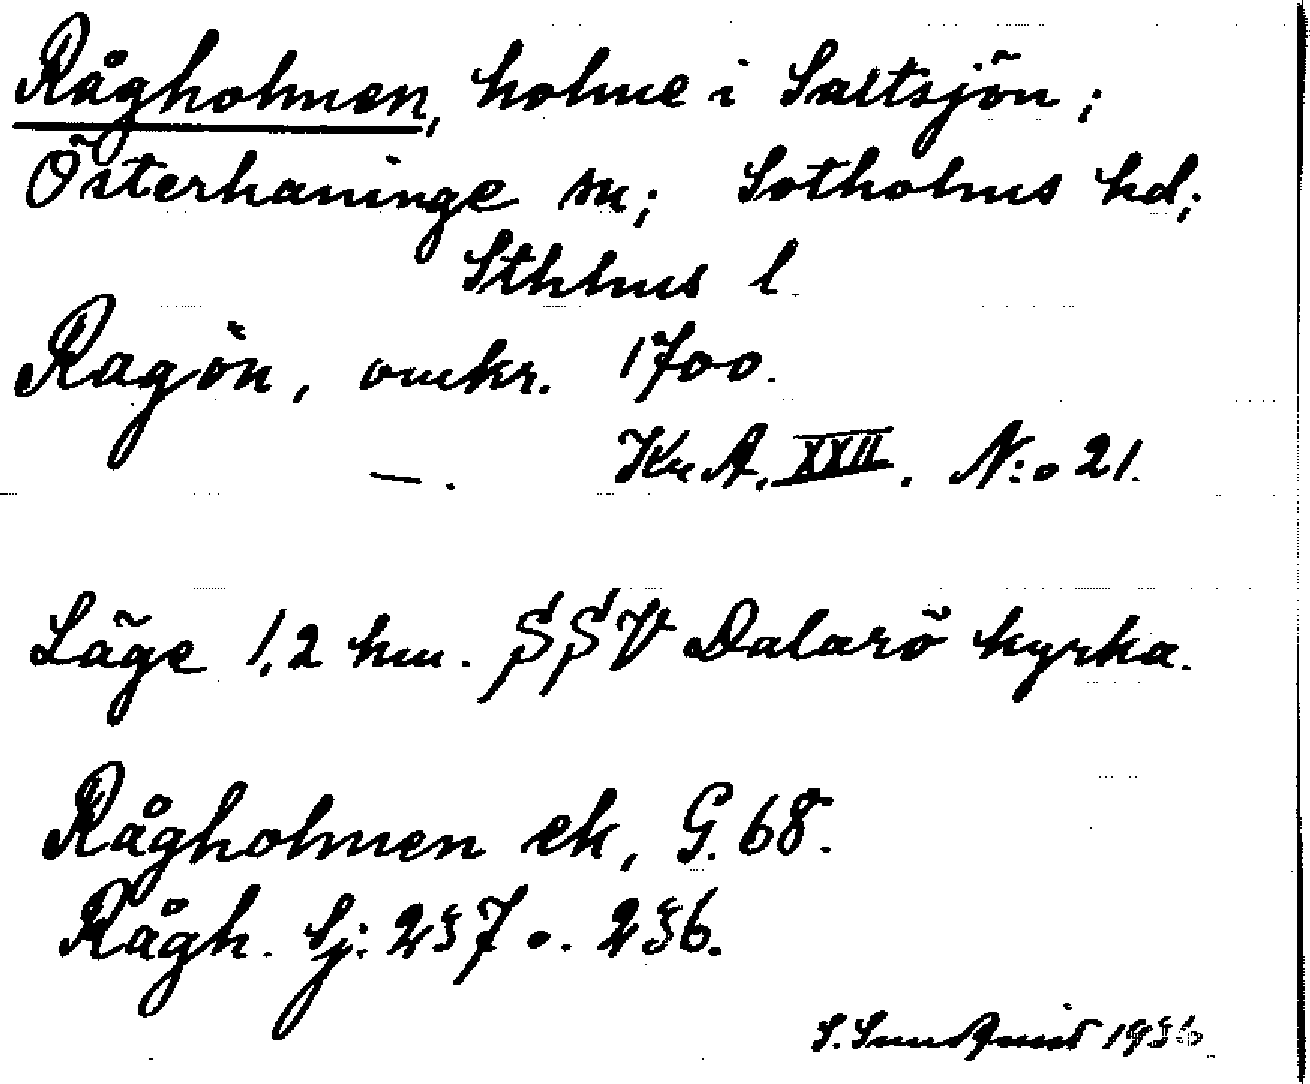 Rågholmen, holme i Saltsjön;
Österhaninge sn; Sotholms hd;
Sthlms l.
Ragön, omkr. 1700.
Kr. A. XXII. N:o 21.
—.
Läge 1,2 km. SSV Dalarö kyrka.
Rågholmen ek, G. 68.
Rågh. Sj: 257 o. 256.
S. Sundqvist 1936.